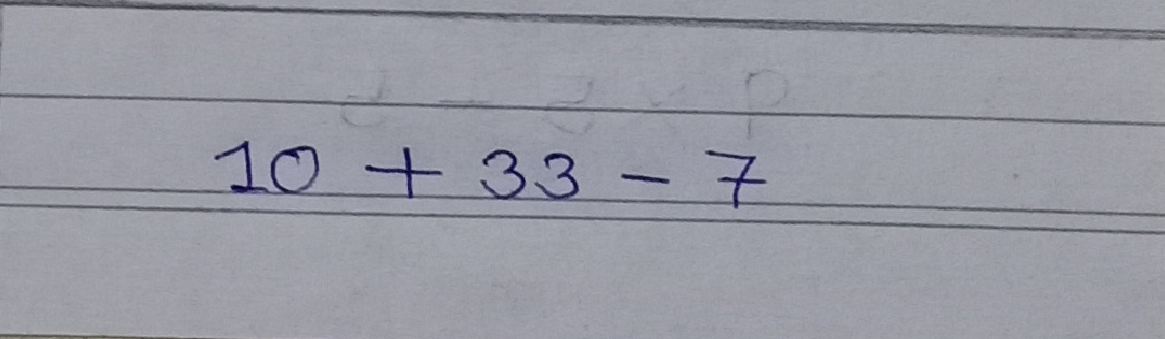 10 + 33 - 7